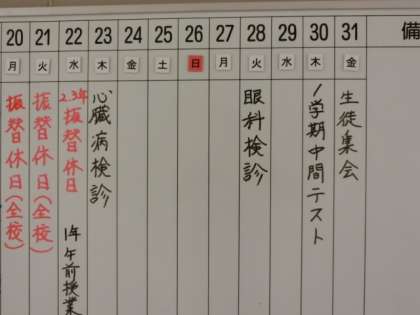 20 21 22 23 24 25 26 27 28 29 30 31 備
月 火 水 木 金 土 日 月 火 水 木 金
振替休日(全校)
振替休日(全校)
2.3年振替休日
1年午前授業
心臓病検診
眼科検診
1学期中間テスト
生徒集会